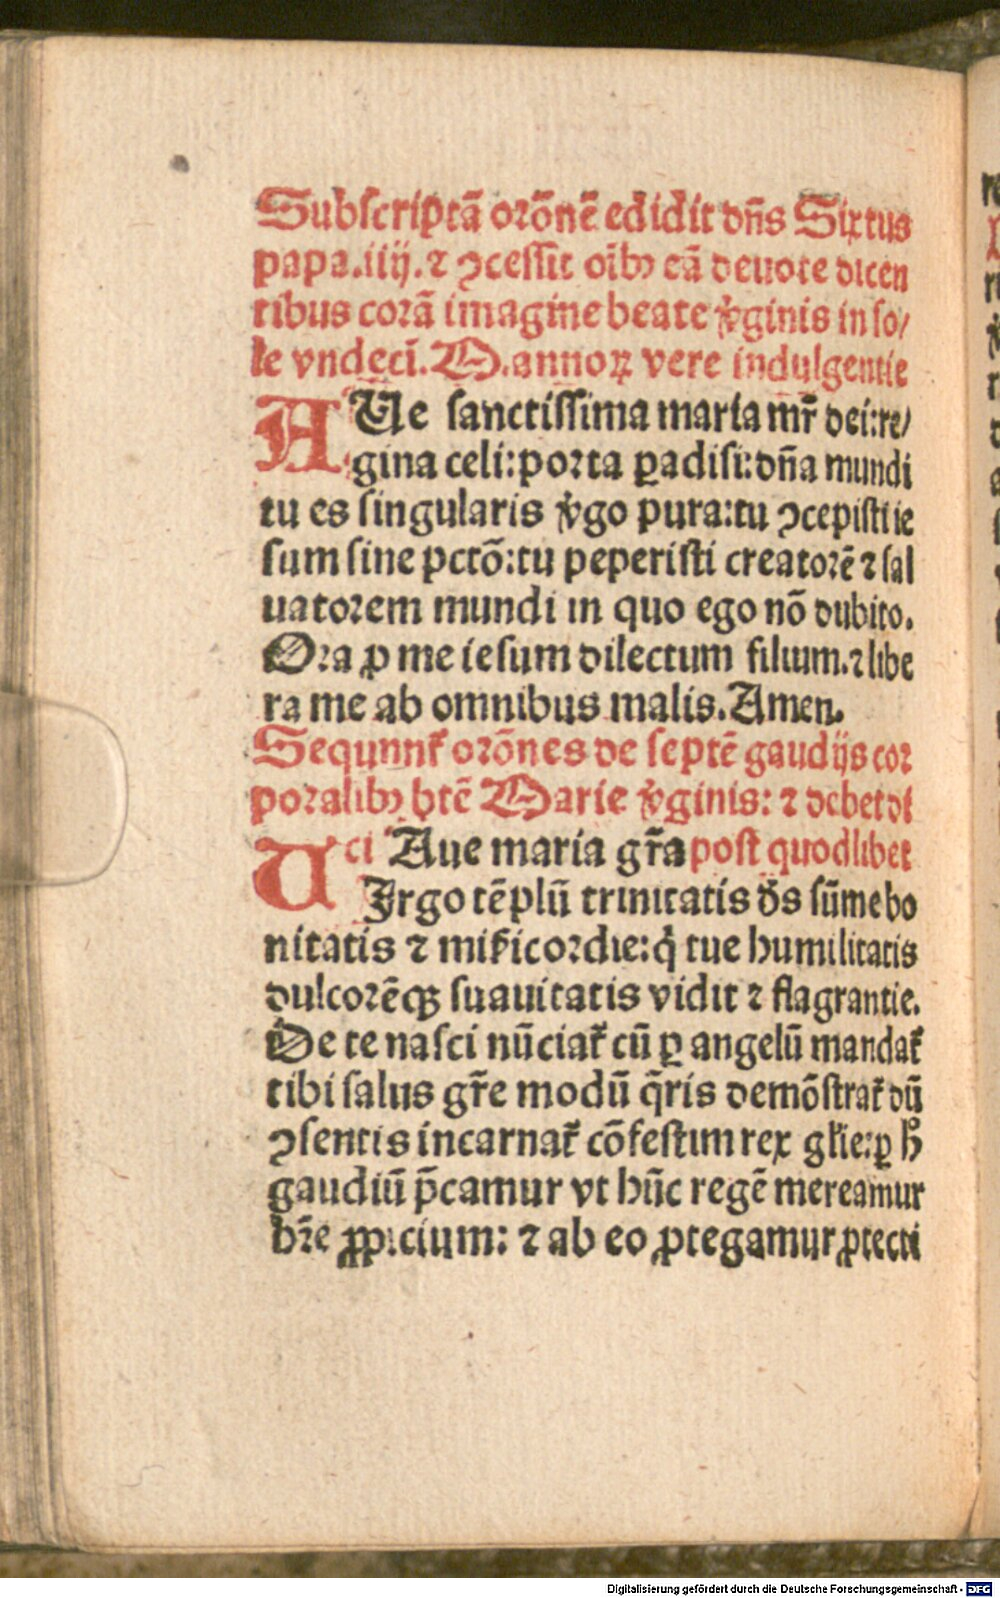 Subscriptā orōnē edidit dn̄s Sixtus
papa.iiij. ⁊ ꝯcessit oībꝫ eā deuote dicen
tibus corā imagine beate v̓ginis in so/
le vndeci. M. annoꝝ vere indulgentie
AUe sanctissima maria mr̄ dei:re/
gina celi:porta ꝑadisi:dn̄a mundi
tu es singularis v̓go pura:tu ꝯcepisti ie
sum sine pctō:tu peperisti creatorē ⁊ sal
uatorem mundi in quo ego nō dubito.
Ora ꝓ me iesum dilectum filium.⁊ libe
ra me ab omnibus malis.Amen.
Sequnnt᷑ orōnes de septē gaudijs cor
poralibꝫ btē Marie v̓ginis: ⁊ debet di
ci Aue maria gr̄a post quodlibet
VIrgo tēplū trinitatis ds̄ sūme bo
nitatis ⁊ mis̄icordie:q̇ tue humilitatis
dulcorēqꝫ suauitatis vidit ⁊ flagrantie.
De te nasci nūciat᷑ cū ꝑ angelū mandat᷑
tibi salus gr̄e modū q̄ris demōstrat᷑ dū
ꝯsentis incarnat᷑ cōfestim rex gl̄ie:ꝑ h̄
gaudiū p̄camur vt hūc regē mereamur
hr̄e ꝓpicium: ⁊ ab eo ꝓtegamur ꝓtecti
r
Digitalisierung gefördert durch die Deutsche Forschungsgemeinschaft - DFG